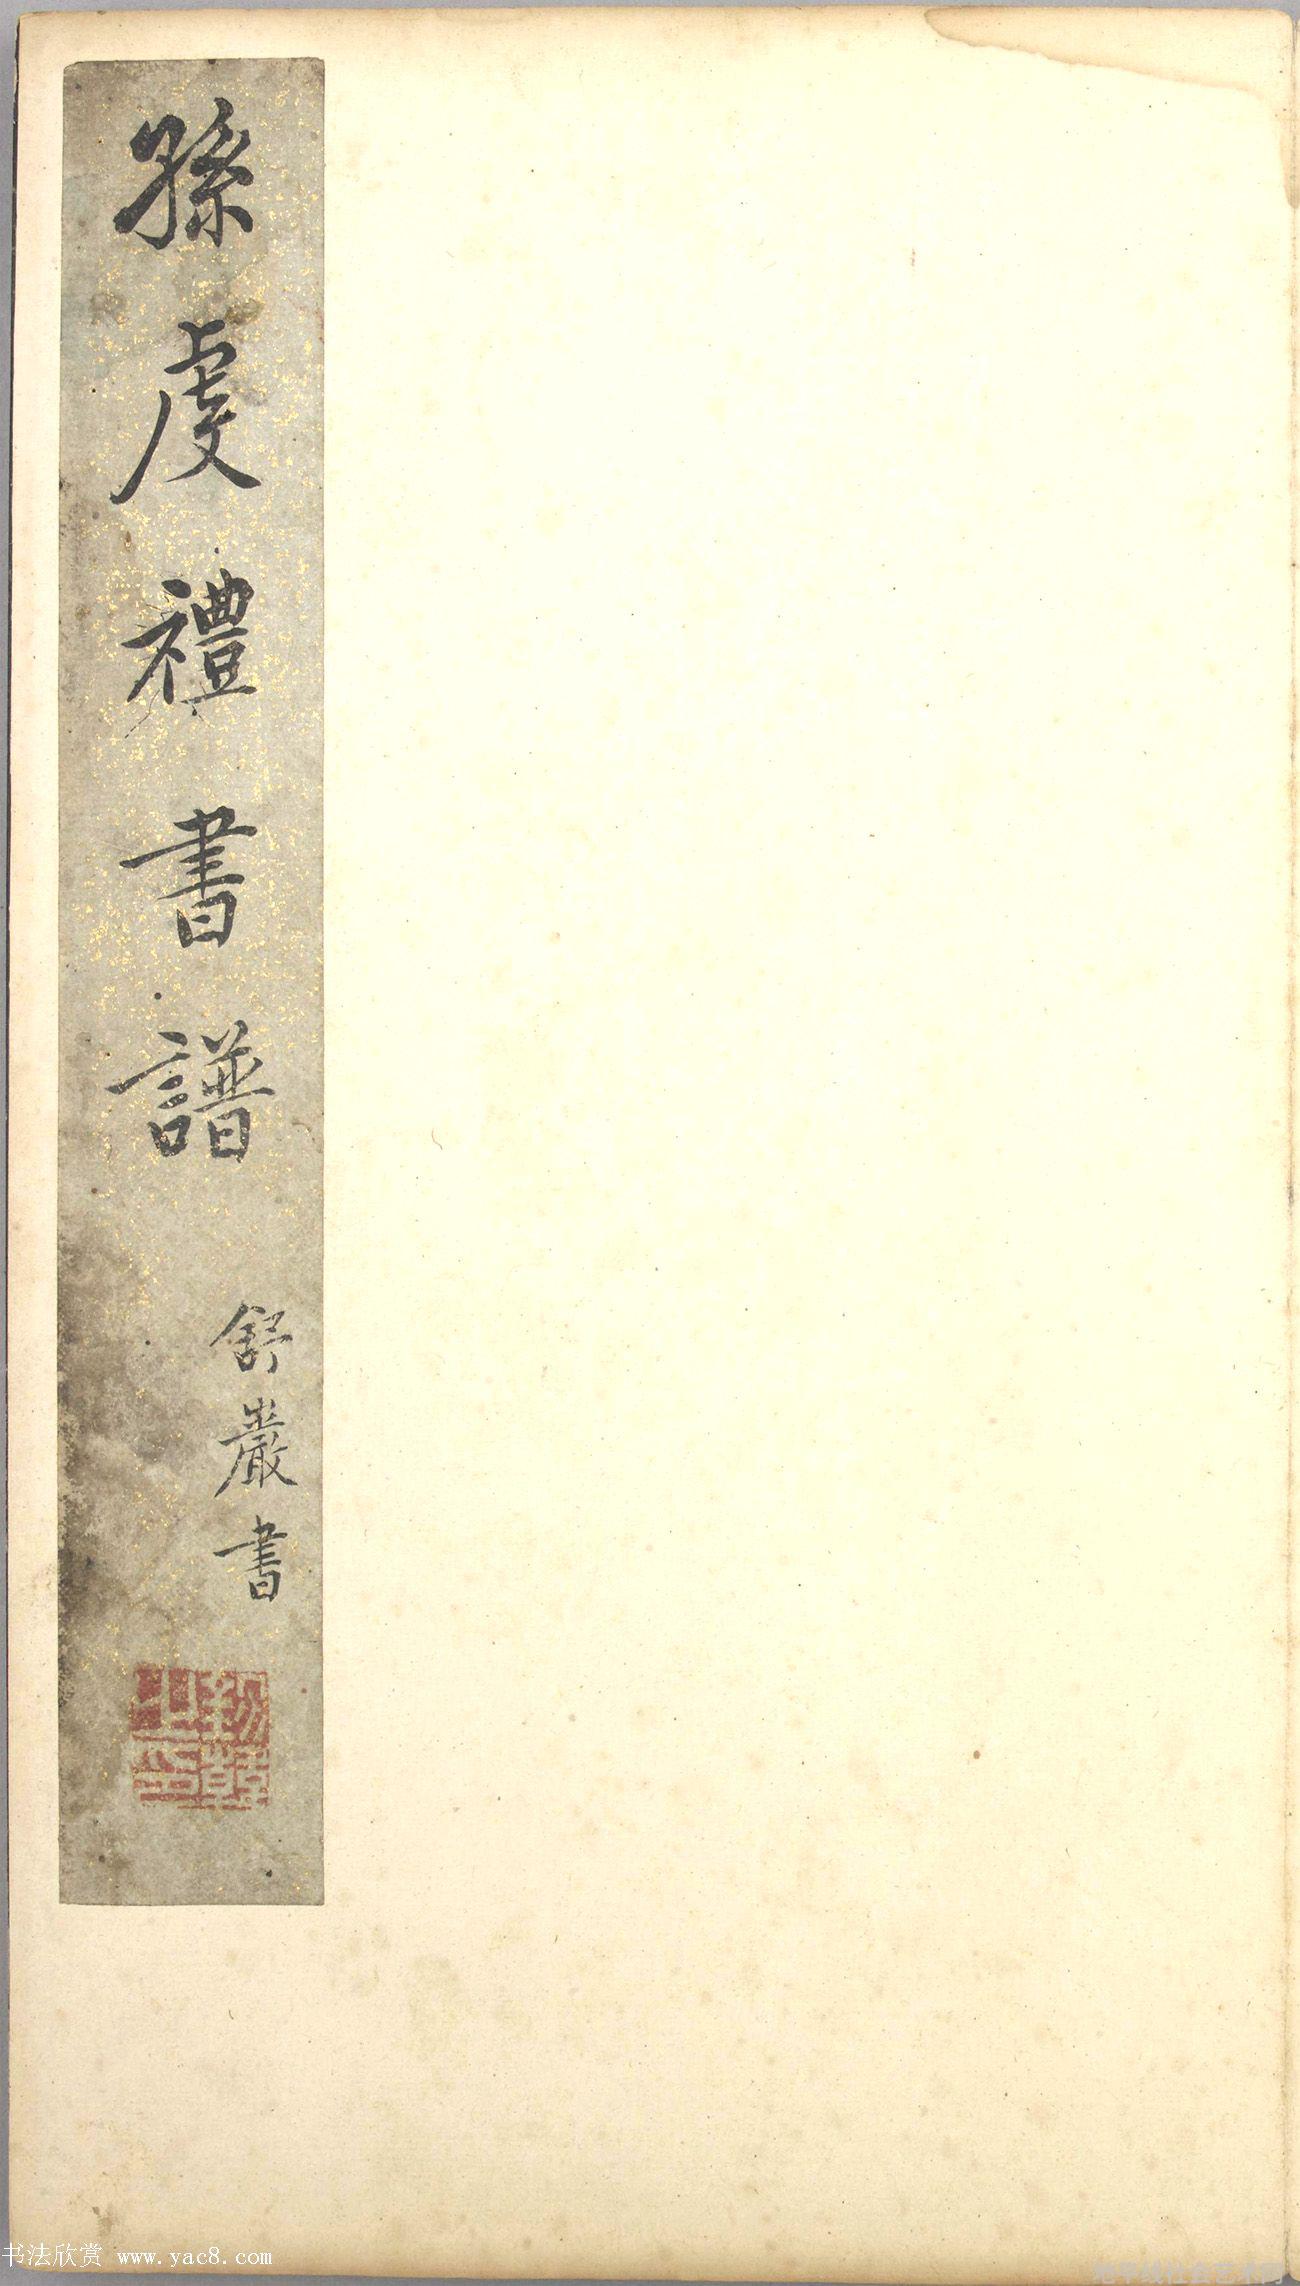 孫虔禮書譜
舒嚴書
书法欣赏 www.yac8.com